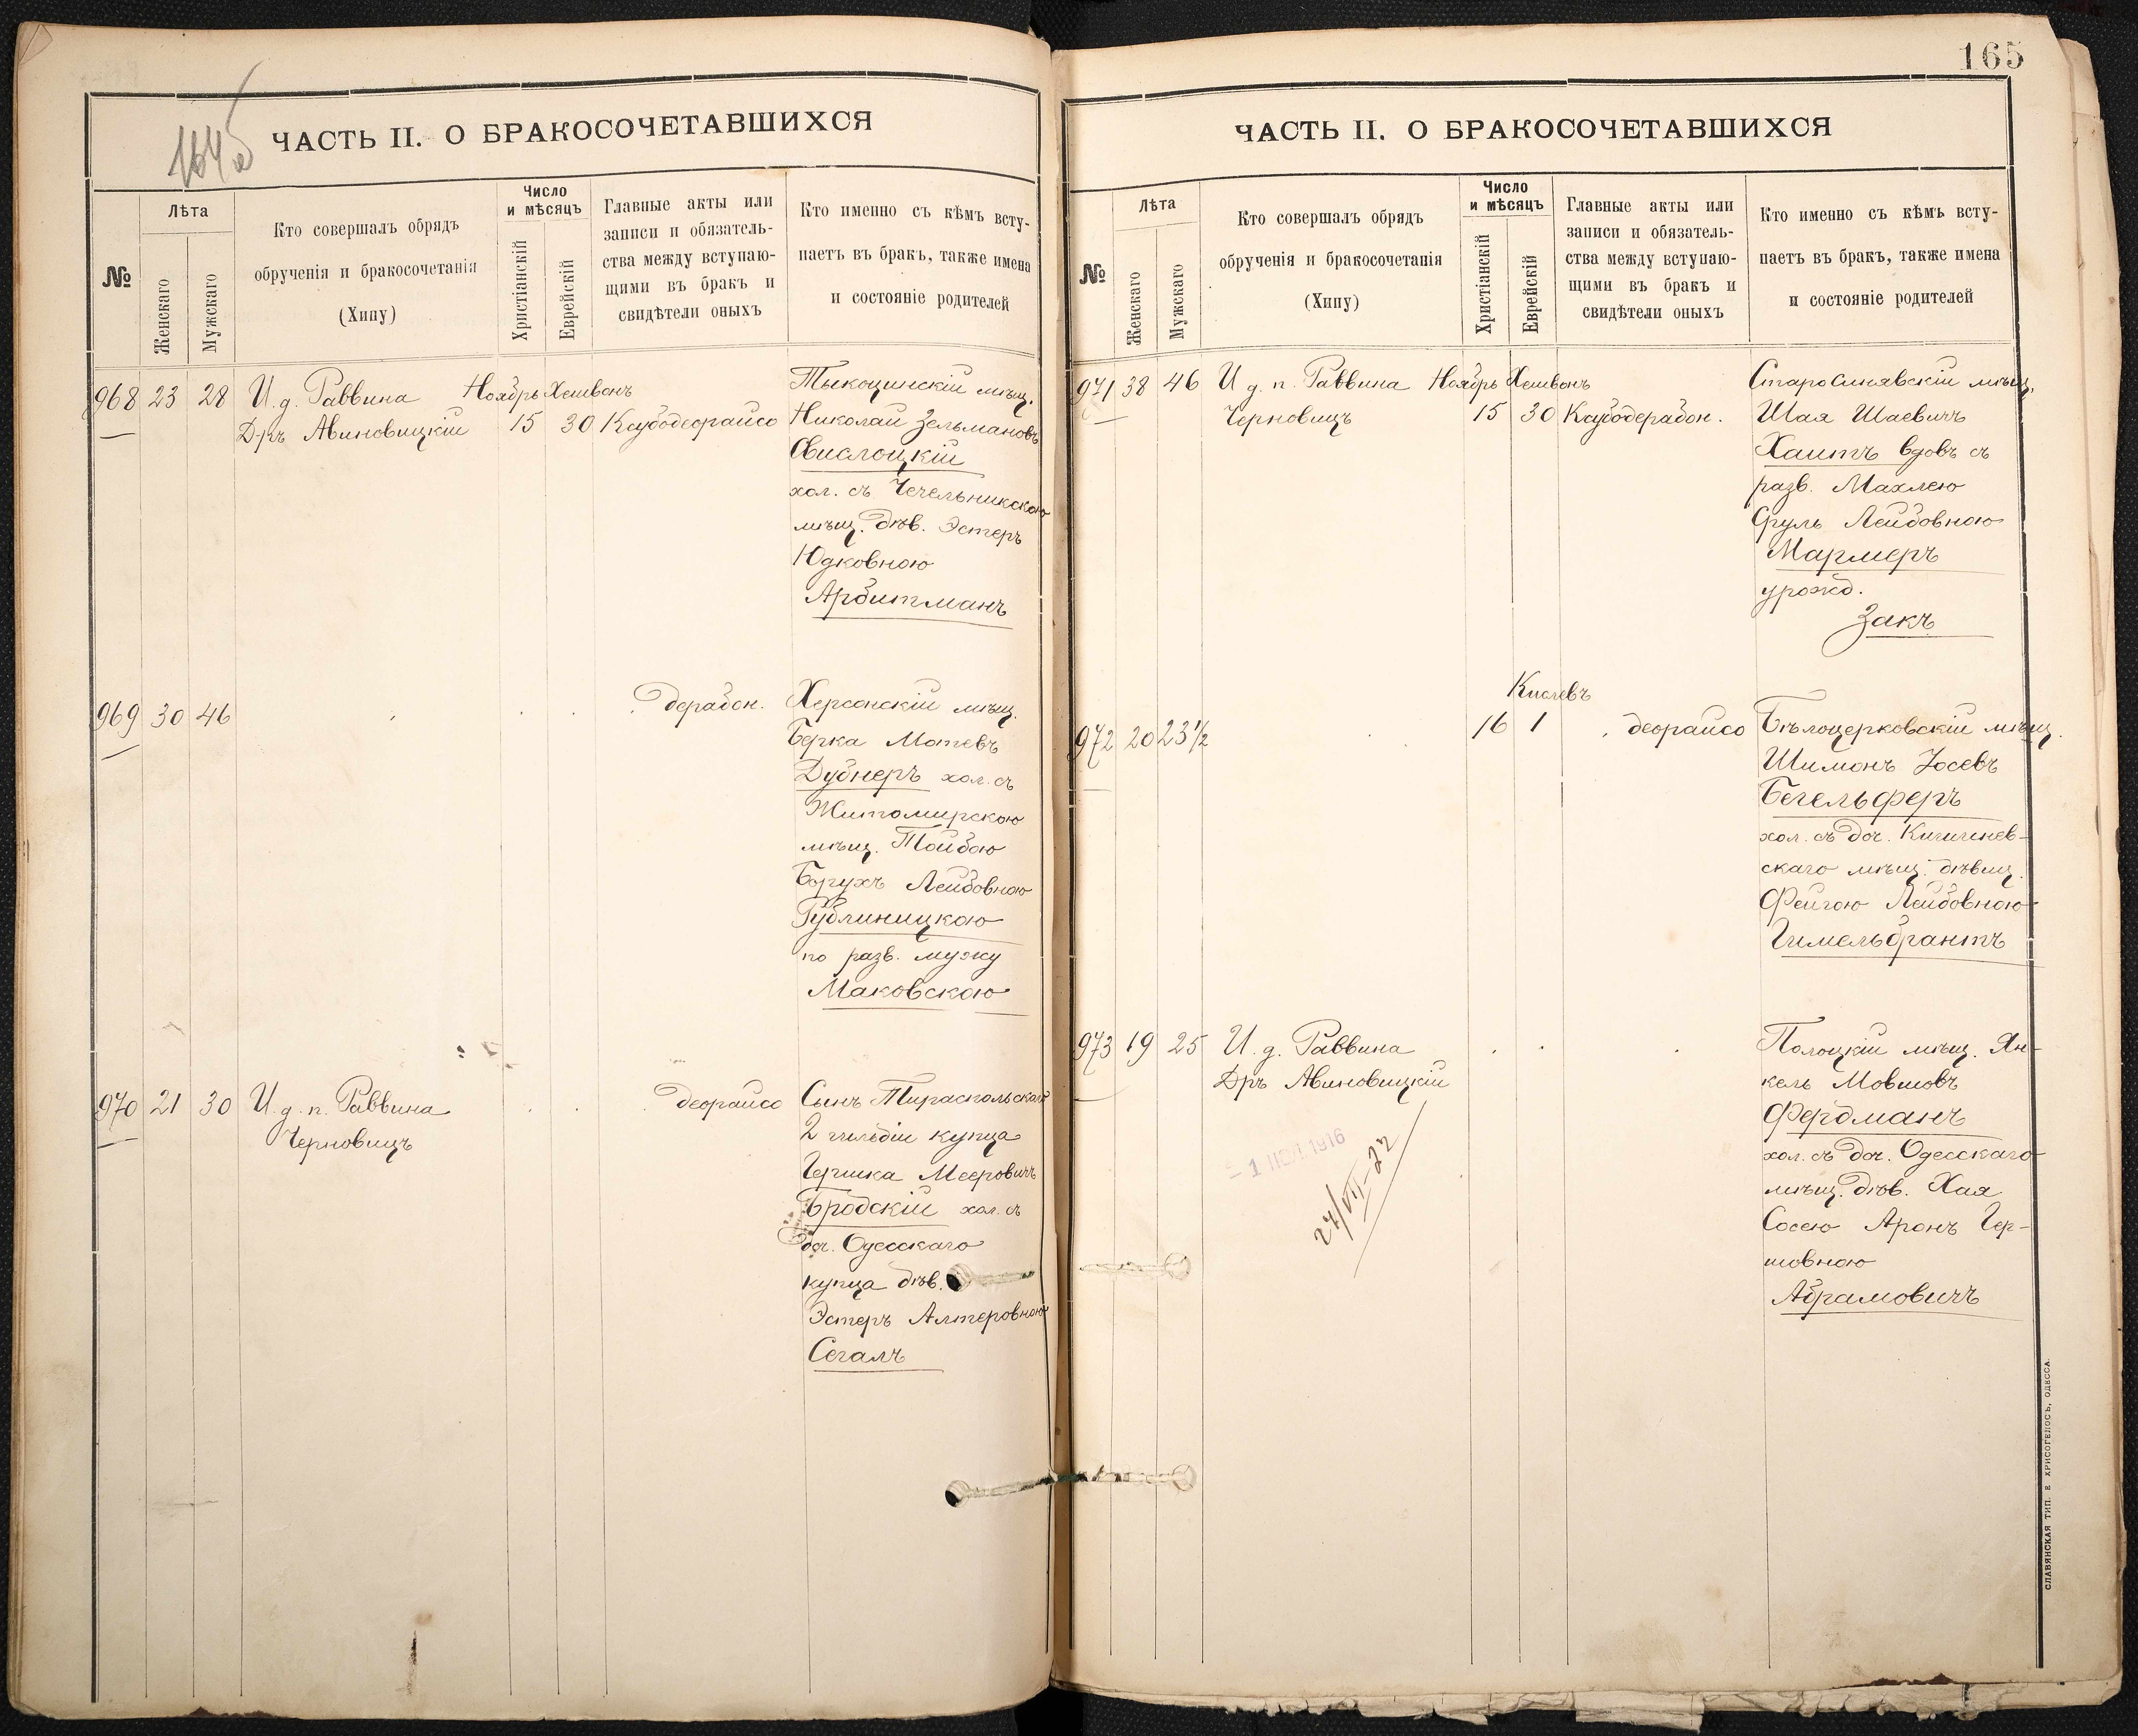 164б
ЧАСТЬ II. О БРАКОСОЧЕТАВШИХСЯ
№
Лѣта
Женскаго
Мужскаго
Кто совершалъ обрядъ
обрученія и бракосочетанія
(Хипу)
Число
и мѣсяцъ
Христіанскій
Еврейскій
Главные акты или
записи и обязатель-
ства между вступаю-
щими въ бракъ и
свидѣтели оныхъ
Кто именно съ кѣмъ всту-
паетъ въ бракъ, также имена
и состояніе родителей
968 23 28 И. д. Раввина Ноябрь Хешвонъ Тыкоцинскій мѣщ.
Д-ръ Авиновицкій 15 30 Каубодеорайсо Николай Зельмановъ
Свислоцкій
хол. съ Чечельникскою
мѣщ. дѣв. Эстеръ
Юдковною
Арбитманъ
969 30 46 дерабон. Херсонскій мѣщ.
Берка Мотевъ
Дубнеръ хол. съ
Житомирскою
мѣщ. Тойбою
Борухъ Лейбовною
Рублиницкою
по разв. мужу
Маковскою
970 21 30 И. д. п. Раввина деорайсо Сынъ Тираспольскаго
Черновицъ 2 гильдіи купца
Гершка Мееровичъ
Бродскій хол. съ
доч. Одесскаго
купца дѣв.
Эстеръ Алтеровною
Сегалъ
165
ЧАСТЬ II. О БРАКОСОЧЕТАВШИХСЯ
№
Лѣта
Женскаго
Мужскаго
Кто совершалъ обрядъ
обрученія и бракосочетанія
(Хипу)
Число
и мѣсяцъ
Христіанскій
Еврейскій
Главные акты или
записи и обязатель-
ства между вступаю-
щими въ бракъ и
свидѣтели оныхъ
Кто именно съ кѣмъ всту-
паетъ въ бракъ, также имена
и состояніе родителей
971 38 46 И. д. п. Раввина Ноябрь Хешвонъ СтароСинявскій мѣщ.
Черновицъ 15 30 Каубодерабон. Шая Шаевичъ
Хаитъ вдовъ съ
разв. Махлею
Сруль Лейбовною
Мармеръ
урожд.
Закъ
Кислевъ
972 20 23½ 16 1 деорайсо Бѣлоцерковскій мѣщ.
Шимонъ Іосевъ
Бегельферъ
хол. съ доч. Кишинев-
скаго мѣщ. дѣвиц.
Фейгою Лейбовною
Гимельбрантъ
973 19 25 И. д. Раввина Полоцкій мѣщ. Ян-
Д-ръ Авиновицкій кель Мовшовъ
Фердманъ
хол. съ доч. Одесскаго
мѣщ. дѣв. Хая
Сосею Аронъ Гер-
шовною
Абрамовичъ
27/VII-22
СЛАВЯНСКАЯ ТИП. Е ХРИСОГЕЛОСЪ, ОДЕССА.